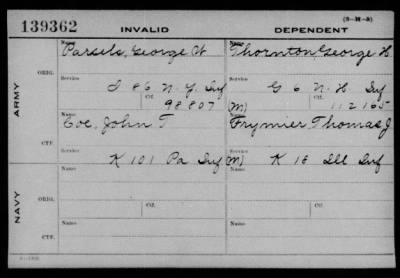 (3-M-3)
139362 INVALID DEPENDENT
Name Name
Parsels, George W Thornton, George H
ORIG. Service Service
I 86 N.Y. Inf G 6 N.H Inf
ARMY Ctf. Ctf.
98807 (M) 112165
Name Name
Coe, John T Frymier Thomas J
CTF. Service Service
K 101 Pa Inf (M) K 16 Ill Inf
Name Name
ORIG. Service Service
NAVY Ctf. Ctf.
Name Name
CTF.